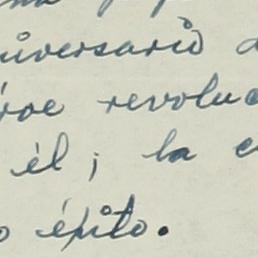 iversario
roe revolu
él; la
éxito.